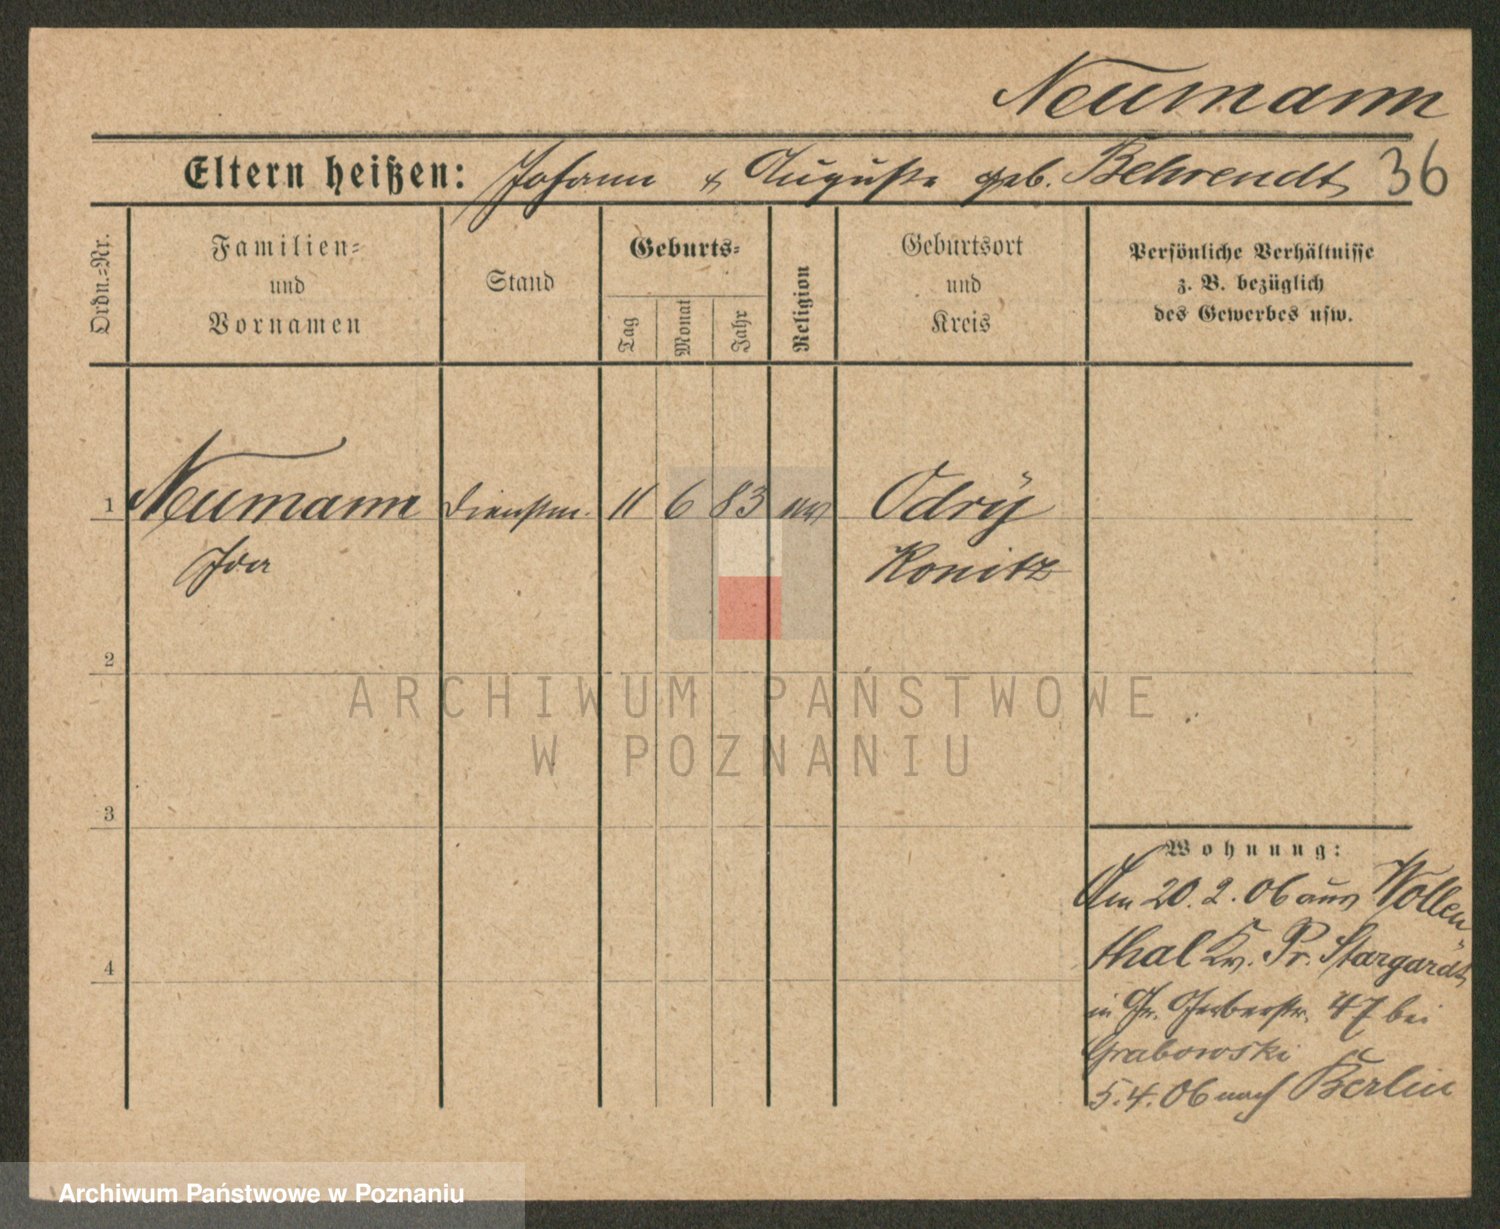 Neumann
Eltern heißen: Johann & Auguste geb. Behrendt 36
Ordn.=Nr.
Familien=
und
Vornamen
Stand
Geburts=
Tag
Monat
Jahr
Religion
Geburtsort
und
Kreis
Persönliche Verhältnisse
z. B. bezüglich
des Gewerbes usw.
1 Neumann Dienstm. 11 6 83 Odry
Ida Konitz
2
3
4
Wohnung:
Am 20. 2. 06 aus Wollen
thal Kr. Pr. Stargardt
in Gr. Gerberstr. 47 bei
Grabowski
5. 4. 06 nach Berlin
ARCHIWUM PAŃSTWOWE
W POZNANIU
Archiwum Państwowe w Poznaniu